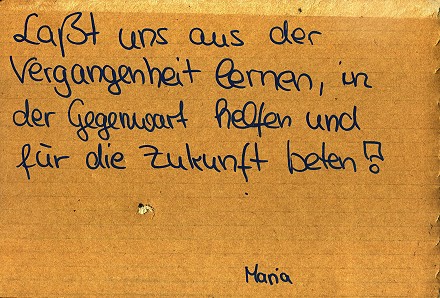 Laßt uns aus der
Vergangenheit lernen, in
der Gegenwart helfen und
für die Zukunft beten!
Maria